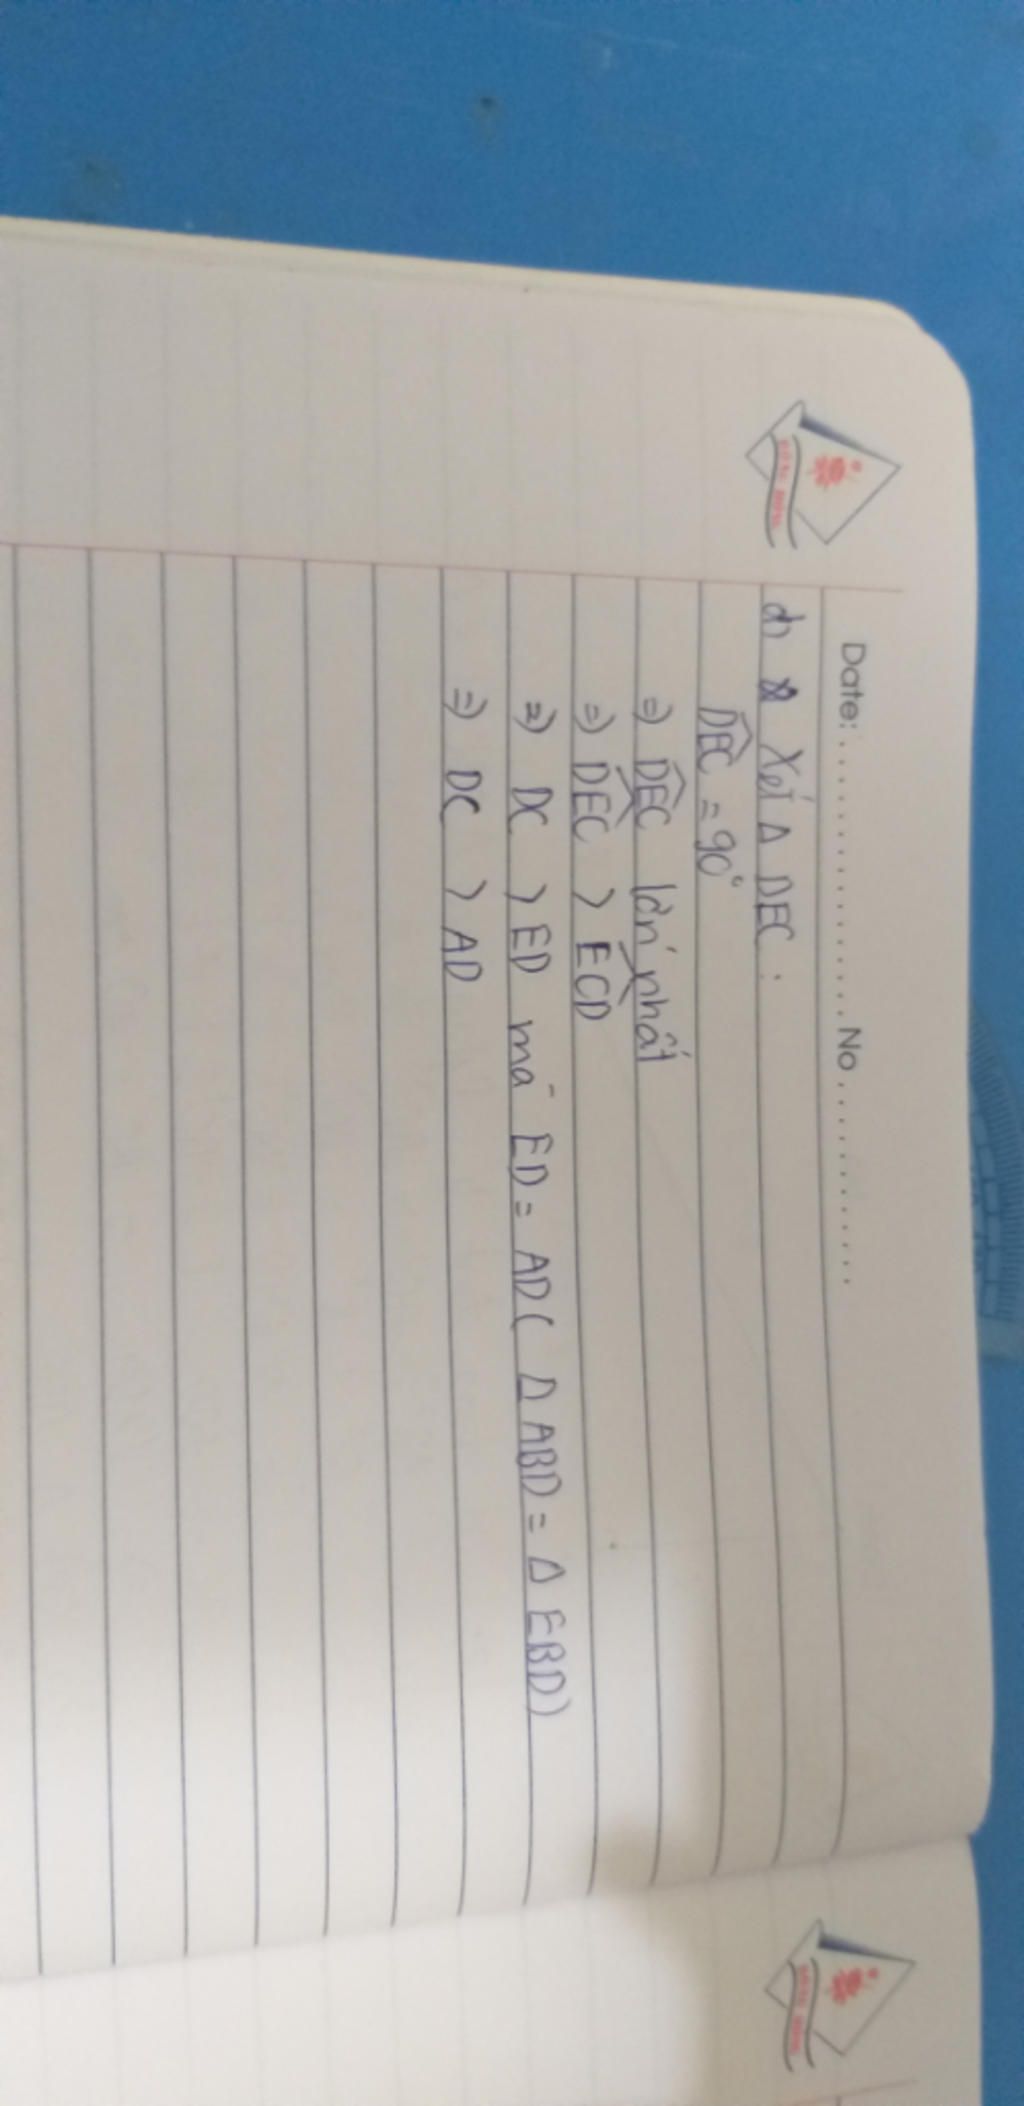 Date: ........................ No ................
d) Xét Δ DEC :
DEC = 90°
=) DEC lớn nhất
=) DEC > ECD
=) DC > ED mà ED = AD ( Δ ABD = Δ EBD)
=) DC > AD